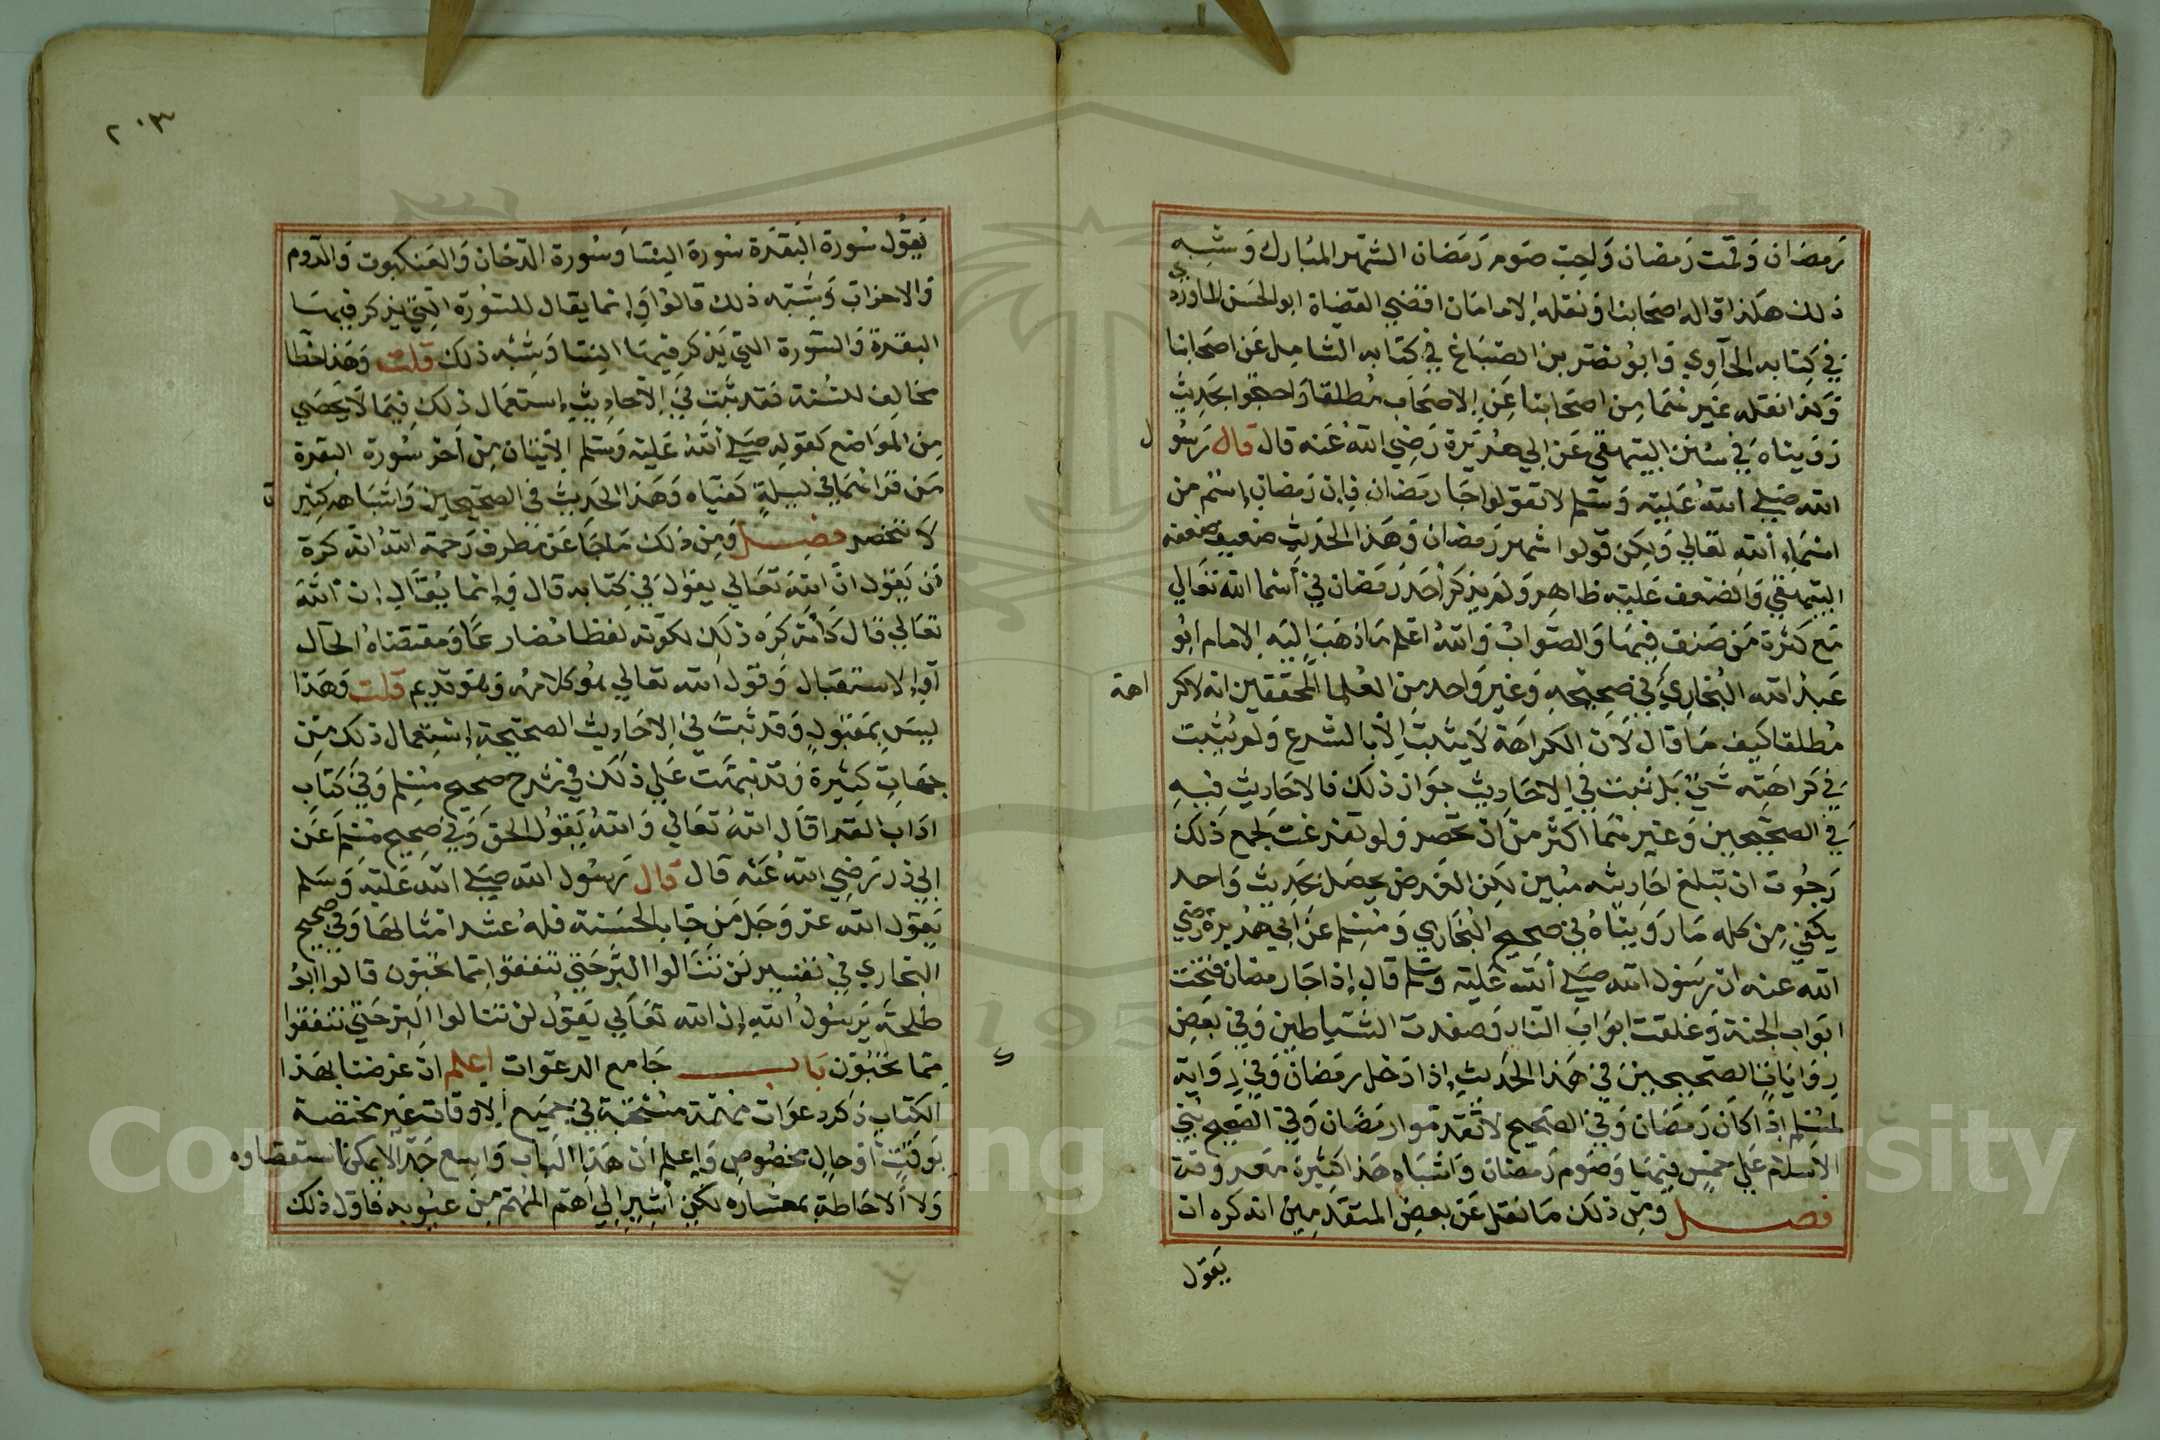 رمضان وقمت رمضان واجب صوم رمضان الشهر المبارك وشبه
ذلك هكذا قاله اصحابنا ونقله الامامان اقضى القضاة ابو الحسن الماوردي
في كتابه الحاوي وابو نصر بن الصباغ في كتابه الشامل عن اصحابنا
وكذا نقله غيرهما من اصحابنا عن الاصحاب مطلقا واحتجوا بحديث
رويناه في سنن البيهقي عن ابي هريرة رضي الله عنه قال قال رسول
الله صلى الله عليه وسلم لا تقولوا جا رمضان فان رمضان اسم من
اسماء الله تعالى ولكن قولوا شهر رمضان وهذا الحديث ضعيف ضعفه
البيهقي والضعف عليه ظاهر ولم يذكر احد رمضان في اسما الله تعالى
مع كثرة من صنف فيها والصواب والله اعلم ما ذهب اليه الامام ابو
عبد الله البخاري في صحيحه وغير واحد من العلما المحققين انه لا كراهة
مطلقا كيف ما قال لان الكراهة لا يثبت الا بالشرع ولم يثبت
في كراهته شي بل ثبت في الاحاديث جواز ذلك فالاحاديث فيه
في الصحيحين وغيرهما اكثر من ان تحصر ولو تفرغت لجمع ذلك
رجوت ان تبلغ احاديثه مبين لكن الغرض يحصل بحديث واحد
يكفي من كله ما رويناه في صحيح البخاري ومسلم عن ابي هريرة رضي
الله عنه ان رسول الله صلى الله عليه وسلم قال اذا جا رمضان فتحت
ابواب الجنة وغلقت ابواب النار وصفدت الشياطين وفي بعض
روايات الصحيحين في هذا الحديث اذا دخل رمضان وفي رواية
لمسلم اذا كان رمضان وفي الصحيح لا تقدموا رمضان وفي الصحيح بني
الاسلام على خمس منها وصوم رمضان واشباه هذا كثيرة معروفة
فصل ومن ذلك ما نقل عن بعض المتقدمين انه كره ان
يقول
٢٠٣
يقول سورة البقرة سورة النسا وسورة الدخان والعنكبوت والروم
والاحزاب وشبه ذلك قالوا وانما يقال للسورة التي يذكر فيها
البقرة والسورة التي يذكر فيها النسا وشبه ذلك قلت وهذا خطا
مخالف للسنة فقد ثبت في الاحاديث استعمال ذلك فيما لا يحصى
من المواضع كقوله صلى الله عليه وسلم الايتان من آخر سورة البقرة
من قراهما في ليلة كفتاه وهذا الحديث في الصحيحين واشباهه كثير
لا تنحصر فصل ومن ذلك ما جا عن مطرف رحمه الله انه كره
ان يقول ان الله تعالى يقول في كتابه قال وانما يقال ان الله
تعالى قال كانه كره ذلك لكونه لفظا مضارعا ومقتضاه الحال
او الاستقبال وقول الله تعالى هو كلامه وهو قديم قلت وهذا
ليس بمقبول وقد ثبت في الاحاديث الصحيحة استعمال ذلك من
جهات كثيرة وقد نبهت على ذلك في شرح صحيح مسلم وفي كتاب
اداب القرا قال الله تعالى والله يقول الحق وفي صحيح مسلم عن
ابي ذر رضي الله عنه قال قال رسول الله صلى الله عليه وسلم
يقول الله عز وجل من جا بالحسنة فله عشر امثالها وفي صحيح
البخاري في تفسير لن تنالوا البر حتى تنفقوا مما تحبون قال ابو
طلحة يرسول الله ان الله تعالى يقول لن تنالوا البر حتى تنفقوا
مما تحبون باب جامع الدعوات اعلم ان غرضنا بهذا
الكتاب ذكر دعوات مهمة مستحبة في جميع الاوقات غير مختصة
بوقت او حال مخصوص واعلم ان هذا الباب واسع جدا لا يمكن استقصاوه
ولا الاحاطة بمعشاره لكن اشير الى اهم المهم من عيونه فاول ذلك
Copyright © King Saud University
1957